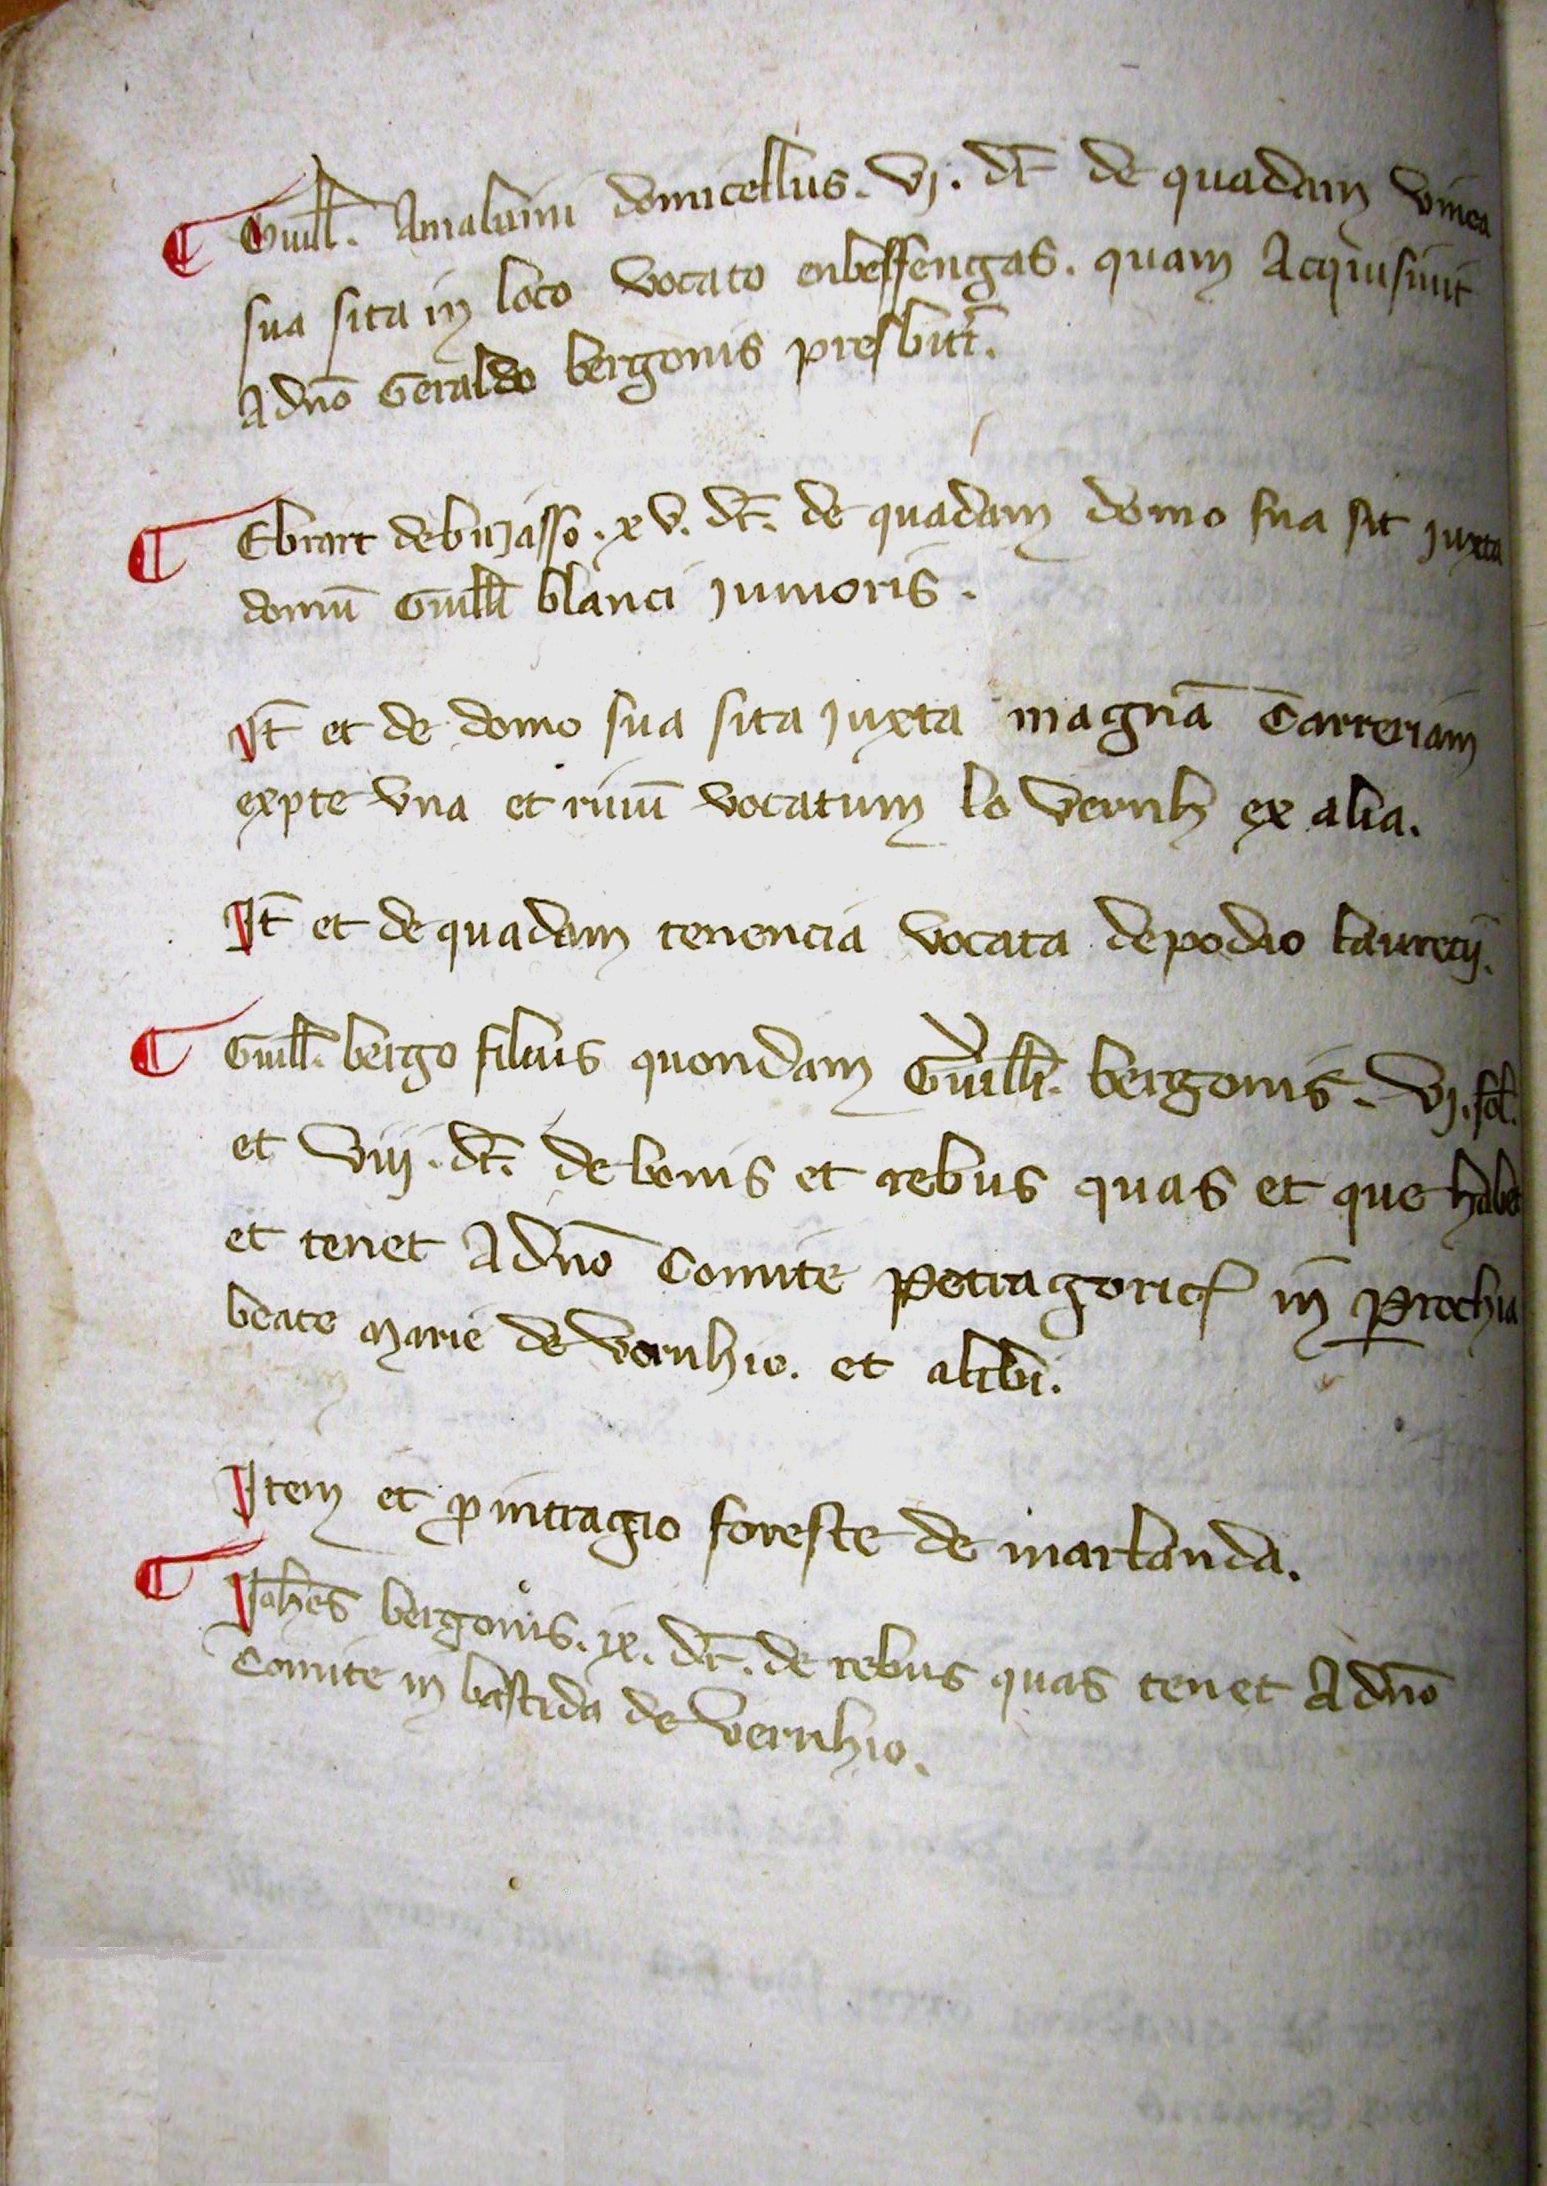 Guill̄. Amaluini domicellus. vj. dr̄ de quadam vinea
sua sita in loco vocato enbeffengas. quam Acquisiuit
A dn̄o Geraldo bergonis presbitr̄.
Ebrart de bujasso. xv. dr̄. de quadam domo sua sit juxta
domū Guill̄i blanci junioris.
It̄ et de domo sua sita juxta magnā Carreriam
ex pte vna et riuū vocatum lo vernh ex alia.
It̄ et de quadam tenencia vocata de podio laurecij.
Guill̄. bergo filius quondam Guill̄i. bergonis. vj. sol̄.
et viij. dr̄. de bonis et rebus quas et que habet
et tenet A dn̄o Comite petragoric̄ in ꝑrochia
beate marie de vernhio. et alibi.
Item et ꝓ intragio foreste de marlanda.
Joh̄es bergonis. ix. dr̄. de rebus quas tenet A dn̄o
Comite in bastida de vernhio.